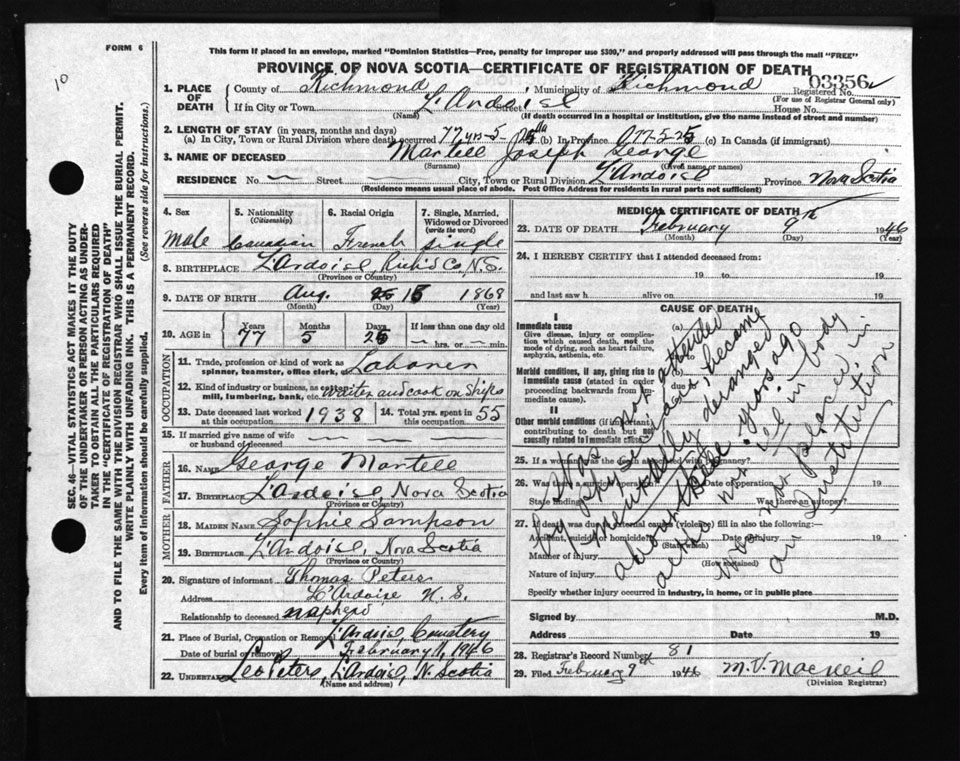 FORM 6
10
This form if placed in an envelope, marked "Dominion Statistics—Free, penalty for improper use $300," and properly addressed will pass through the mail "FREE"
PROVINCE OF NOVA SCOTIA—CERTIFICATE OF REGISTRATION OF DEATH
03356
1. PLACE OF DEATH
County of Richmond Municipality of Richmond Registered No.
(For use of Registrar General only)
If in City or Town L'Ardoise Street House No.
(Name) (If death occurred in a hospital or institution, give the name instead of street and number)
2. LENGTH OF STAY (in years, months and days)
(a) In City, Town or Rural Division where death occurred 77 yrs-5- (b) In Province 77-5-25 (c) In Canada (if immigrant)
3. NAME OF DECEASED Martell Joseph George
(Surname) (Given name or names)
RESIDENCE No. — Street City, Town or Rural Division L'Ardoise Province Nova Scotia
(Residence means usual place of abode. Post Office Address for residents in rural parts not sufficient)
SEC. 46—VITAL STATISTICS ACT MAKES IT THE DUTY OF THE UNDERTAKER OR PERSON ACTING AS UNDERTAKER TO OBTAIN ALL THE PARTICULARS REQUIRED IN THE "CERTIFICATE OF REGISTRATION OF DEATH"
AND TO FILE THE SAME WITH THE DIVISION REGISTRAR WHO SHALL ISSUE THE BURIAL PERMIT.
WRITE PLAINLY WITH UNFADING INK. THIS IS A PERMANENT RECORD.
Every item of information should be carefully supplied. (See reverse side for instructions.)
4. Sex 5. Nationality (Citizenship) 6. Racial Origin 7. Single, Married, Widowed or Divorced (write the word)
Male Canadian French single
8. BIRTHPLACE L'Ardoise, Rich'd Co N.S.
(Province or Country)
9. DATE OF BIRTH Aug. 15 1868
(Month) (Day) (Year)
10. AGE in Years Months Days If less than one day
77 5 25 — hrs. or — min.
OCCUPATION
11. Trade, profession or kind of work as spinner, teamster, office clerk, Laborer
12. Kind of industry or business, as cotton mill, lumbering, bank, etc. waiter and cook on Ships
13. Date deceased last worked at this occupation 1938 14. Total yrs. spent in this occupation 55
15. If married give name of wife or husband of deceased — — —
FATHER
16. NAME George Martell
17. BIRTHPLACE L'Ardoise, Nova Scotia
(Province or Country)
MOTHER
18. MAIDEN NAME Sophie Sampson
19. BIRTHPLACE L'Ardoise, Nova Scotia
(Province or Country)
20. Signature of informant Thomas Peters
Address L'Ardoise N.S.
Relationship to deceased naphew
21. Place of Burial, Cremation or Removal L'Ardoise Cemetery
Date of burial or removal February 11, 1946
22. UNDERTAKER Leo Peters, L'Ardoise, N. Scotia
(Name and address)
MEDICAL CERTIFICATE OF DEATH
23. DATE OF DEATH February 9th 1946
(Month) (Day) (Year)
24. I HEREBY CERTIFY that I attended deceased from:
19 to 19
and last saw h alive on 19
CAUSE OF DEATH
I
Immediate cause (a)
Give disease, injury or complication which caused death, not the mode of dying, such as heart failure, asphyxia, asthenia, etc. due to
Morbid conditions, if any, giving rise to immediate cause (stated in order proceeding backwards from immediate cause). due
II
Other morbid conditions (if important) contributing to death but not causally related to immediate cause.
25. If a woman, was the death associated with pregnancy?
26. Was there a surgical operation? Date of operation
State findings Was there an autopsy?
27. If death was due to external causes (violence) fill in also the following:—
Accident, suicide or homicide? Date of injury 19
(State which)
Manner of injury
(How sustained)
Nature of injury
Specify whether injury occurred in industry, in home, or in public place
Was not attended
by physician, became
mentally deranged
about years ago
altho not ill in body
was not placed in
an institution
Signed by M.D.
Address Date 19
28. Registrar's Record Number 81
29. Filed February 9th 1946 M. V. MacNeil
(Division Registrar)